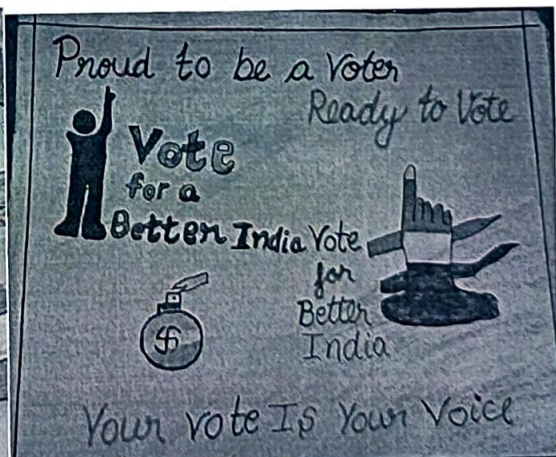 Proud to be a Voter
Ready to Vote
Vote
for a
Better India
Vote
for
Better
India
Your vote Is Your Voice